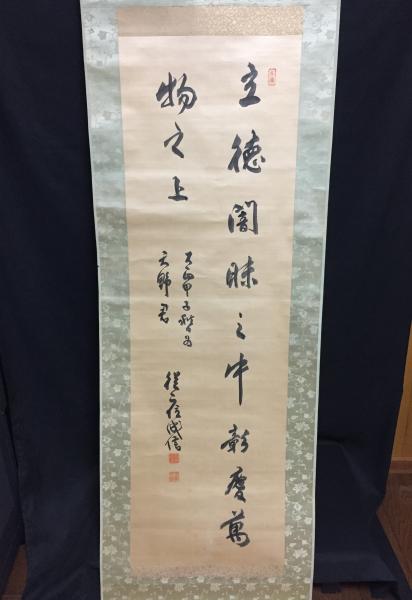 立徳闇昧之中彰慶萬
物之上
甲子
天野君